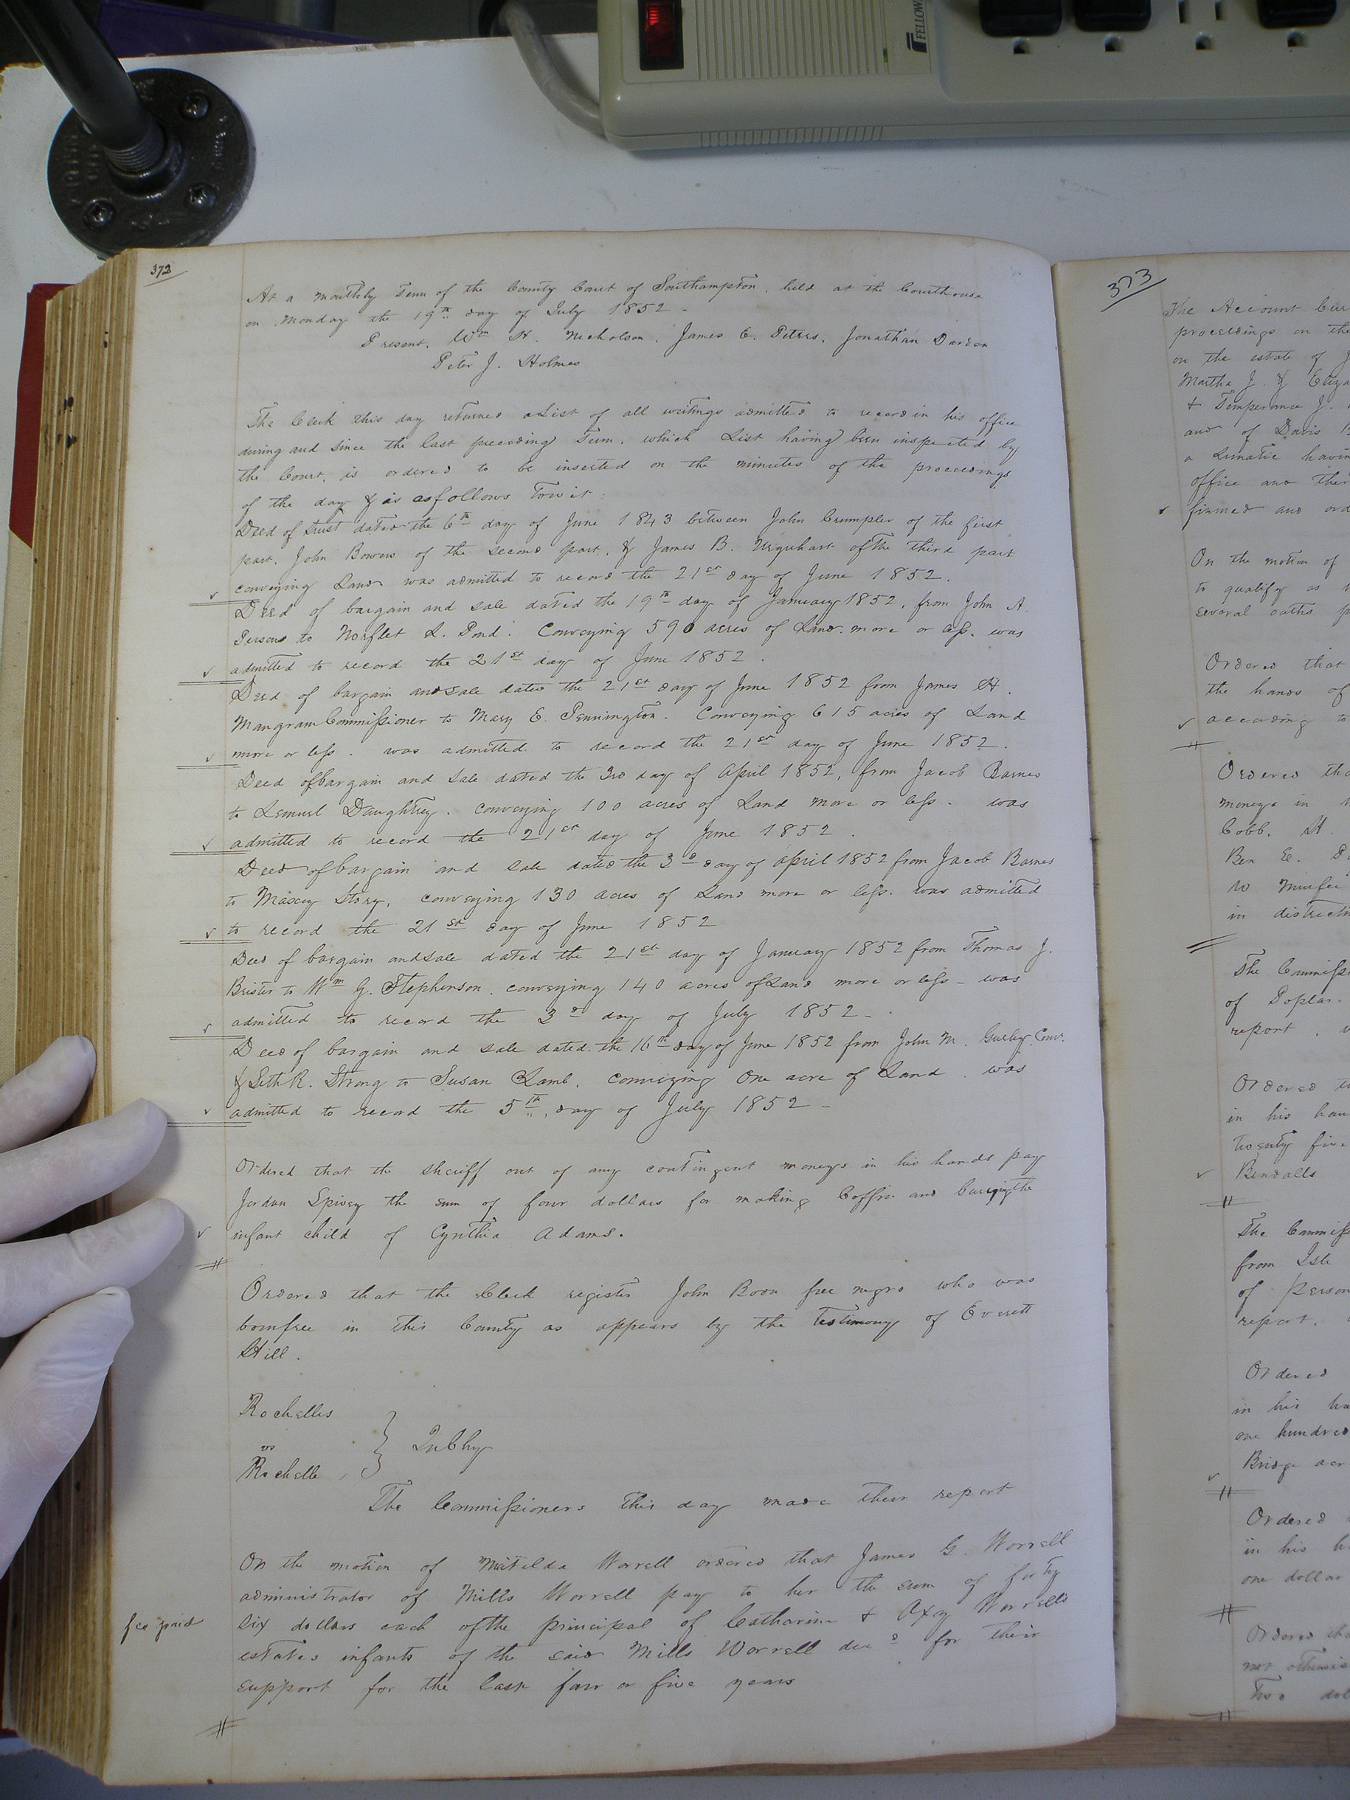 372
At a monthly Term of the County Court of Southampton, held at the Courthouse
on Monday the 19th day of July 1852 -
Present, Wm H. Nicholson, James E. Peters, Jonathan Darden
Peter J. Holmes
The Clerk this day returned a List of all writings admitted to record in his office
during and since the last preceeding Term, which List having been inspected by
the Court, is ordered to be inserted on the minutes of the proceedings
of the day & is as follows Towit:
Deed of trust dated the 6th day of June 1843 between John Crumpler of the first
part, John Bowers of the second part, & James B. Urquhart of the third part
conveying Land was admitted to record the 21st day of June 1852.
Deed of bargain and sale dated the 19th day of January 1852, from John A.
Persons to Norflet L. Pond. Conveying 590 acres of Land more or less. was
admitted to record the 21st day of June 1852.
Deed of bargain and sale dated the 21st day of June 1852 from James H.
Mangram Commissioner to Mary E. Pennington. Conveying 615 acres of Land
more or less. was admitted to record the 21st day of June 1852.
Deed of bargain and sale dated the 3rd day of April 1852, from Jacob Barnes
to Lemuel Daughtrey. conveying 100 acres of Land more or less. was
admitted to record the 21st day of June 1852.
Deed of bargain and sale dated the 3d day of april 1852 from Jacob Barnes
to Massey Story, conveying 130 acres of Land more or less. was admitted
to record the 21st day of June 1852
Deed of bargain and sale dated the 21st day of January 1852 from Thomas J.
Brister to Wm G. Stephenson. conveying 140 acres of Land more or less - was
admitted to record the 3d day of July 1852 -
Deed of bargain and sale dated the 16th day of June 1852 from John M. Gurley Comr.
& Seth R. Strong to Susan Lamb, conveying One acre of Land was
admitted to record the 5th day of July 1852 -
Ordered that the sheriff out of any contingent moneys in his hands pay
Jordan Spivey the sum of four dollars for making Coffin and burying the
infant child of Cynthia Adams.
Ordered that the Clerk register John Boon free negro who was
bornfree in this County as appears by the testimony of Everett
Hill.
Rochelles
vs } In Chy
Rochelle
The Commissioners this day made their report
On the motion of Matilda Worrell ordered that James G. Worrell
administrator of Mills Worrell pay to her the sum of forty
fee paid six dollars each of the principal of Catharine & Axy Worrells
estates infants of the said Mills Worrell decd for their
support for the last four or five years
373
The Account
proceedings on the
on the estate of
Martha J. & Eliza
& Temperance J.
and of Davis
a Lunatic having
office and
firmed and ord
On the motion of
to qualify as
several oaths
Ordered that
the hands of
according to
Ordered tha
moneys in
Cobb. H
Ben E.
in district
The Commiss
of Poplar
report.
Ordered
in his han
twenty five
Bendalls
The Commiss
from Isle
of person
report.
Ordered
in his ha
one hundred
Bridge acr
Ordered
in his h
one dollar
Ordered tha
not otherwis
Two dol
FELLOW